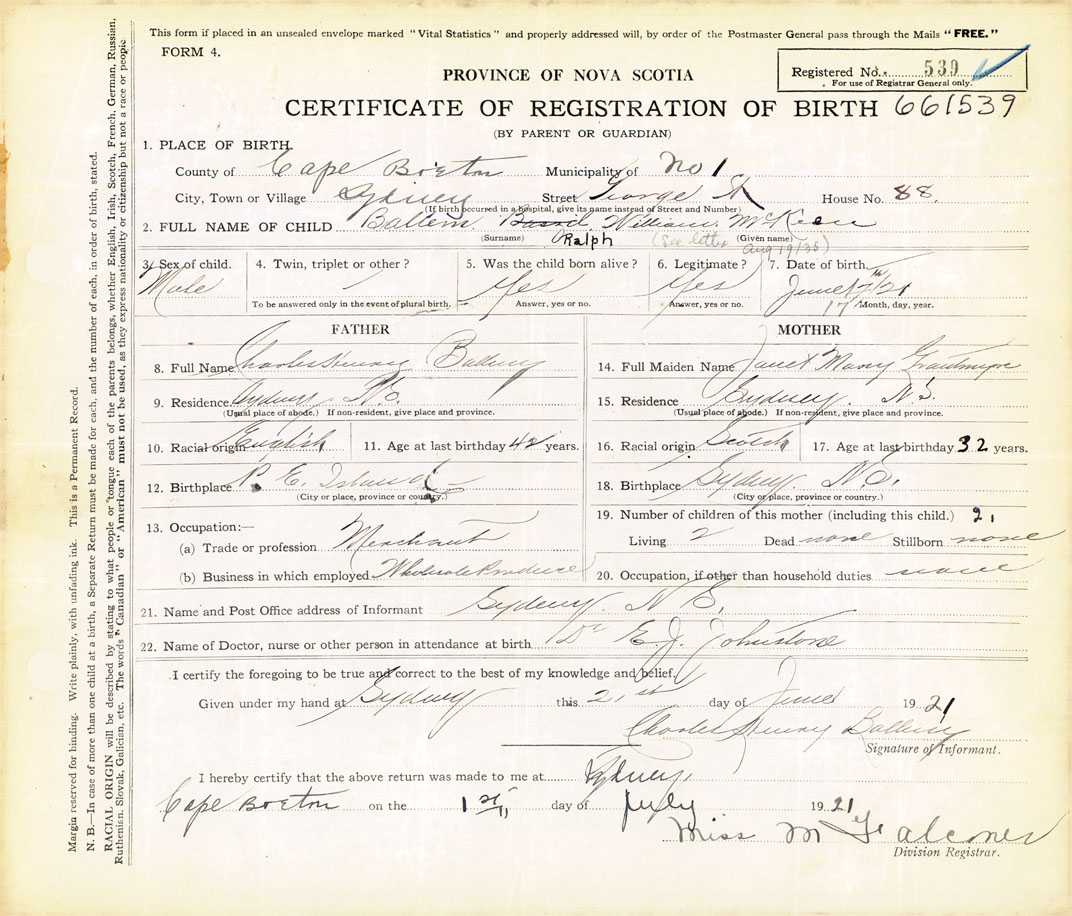 This form if placed in an unsealed envelope marked "Vital Statistics" and properly addressed will, by order of the Postmaster General pass through the Mails "FREE."
FORM 4.
Registered No. 539
For use of Registrar General only.
PROVINCE OF NOVA SCOTIA
CERTIFICATE OF REGISTRATION OF BIRTH 661539
(BY PARENT OR GUARDIAN)
1. PLACE OF BIRTH.
County of Cape Breton Municipality of No 1
City, Town or Village Sydney Street George St House No. 88.
(If birth occurred in a hospital, give its name instead of Street and Number)
2. FULL NAME OF CHILD William McKeen
(Surname) Ralph (See letter (Given name) Aug 19/35)
3. Sex of child. 4. Twin, triplet or other? 5. Was the child born alive? 6. Legitimate? 7. Date of birth.
Male Yes Yes June 17th/21
17
To be answered only in the event of plural birth. Answer, yes or no. Answer, yes or no. Month, day, year.
FATHER MOTHER
8. Full Name Charles Henry 14. Full Maiden Name Janet Mary
9. Residence Sydney N.S. 15. Residence Sydney, N.S.
(Usual place of abode.) If non-resident, give place and province. (Usual place of abode.) If non-resident, give place and province.
10. Racial origin English 11. Age at last birthday 42 years. 16. Racial origin Scotch 17. Age at last birthday 32 years.
12. Birthplace P. E. Island 18. Birthplace Sydney N.S.
(City or place, province or country.) (City or place, province or country.)
13. Occupation:— 19. Number of children of this mother (including this child.) 2,
(a) Trade or profession Merchant Living 2 Dead none Stillborn none
(b) Business in which employed Wholesale Produce 20. Occupation, if other than household duties none
21. Name and Post Office address of Informant Sydney. N S.
22. Name of Doctor, nurse or other person in attendance at birth Dr E. J. Johnstone
I certify the foregoing to be true and correct to the best of my knowledge and belief.
Given under my hand at Sydney this 21st day of June 1921
Charles Henry
Signature of Informant.
I hereby certify that the above return was made to me at Sydney,
Cape Breton on the 1st, day of July 1921
Miss M Falconer
Division Registrar.
Margin reserved for binding. Write plainly, with unfading ink. This is a Permanent Record.
N. B.—In case of more than one child at a birth, a Separate Return must be made for each, and the number of each, in order of birth, stated.
RACIAL ORIGIN will be described by stating to what people or tongue each of the parents belongs, whether English, Irish, Scotch, French, German, Russian,
Ruthenian, Slovak, Galician, etc. The words "Canadian" or "American" must not be used, as they express nationality or citizenship but not a race or people